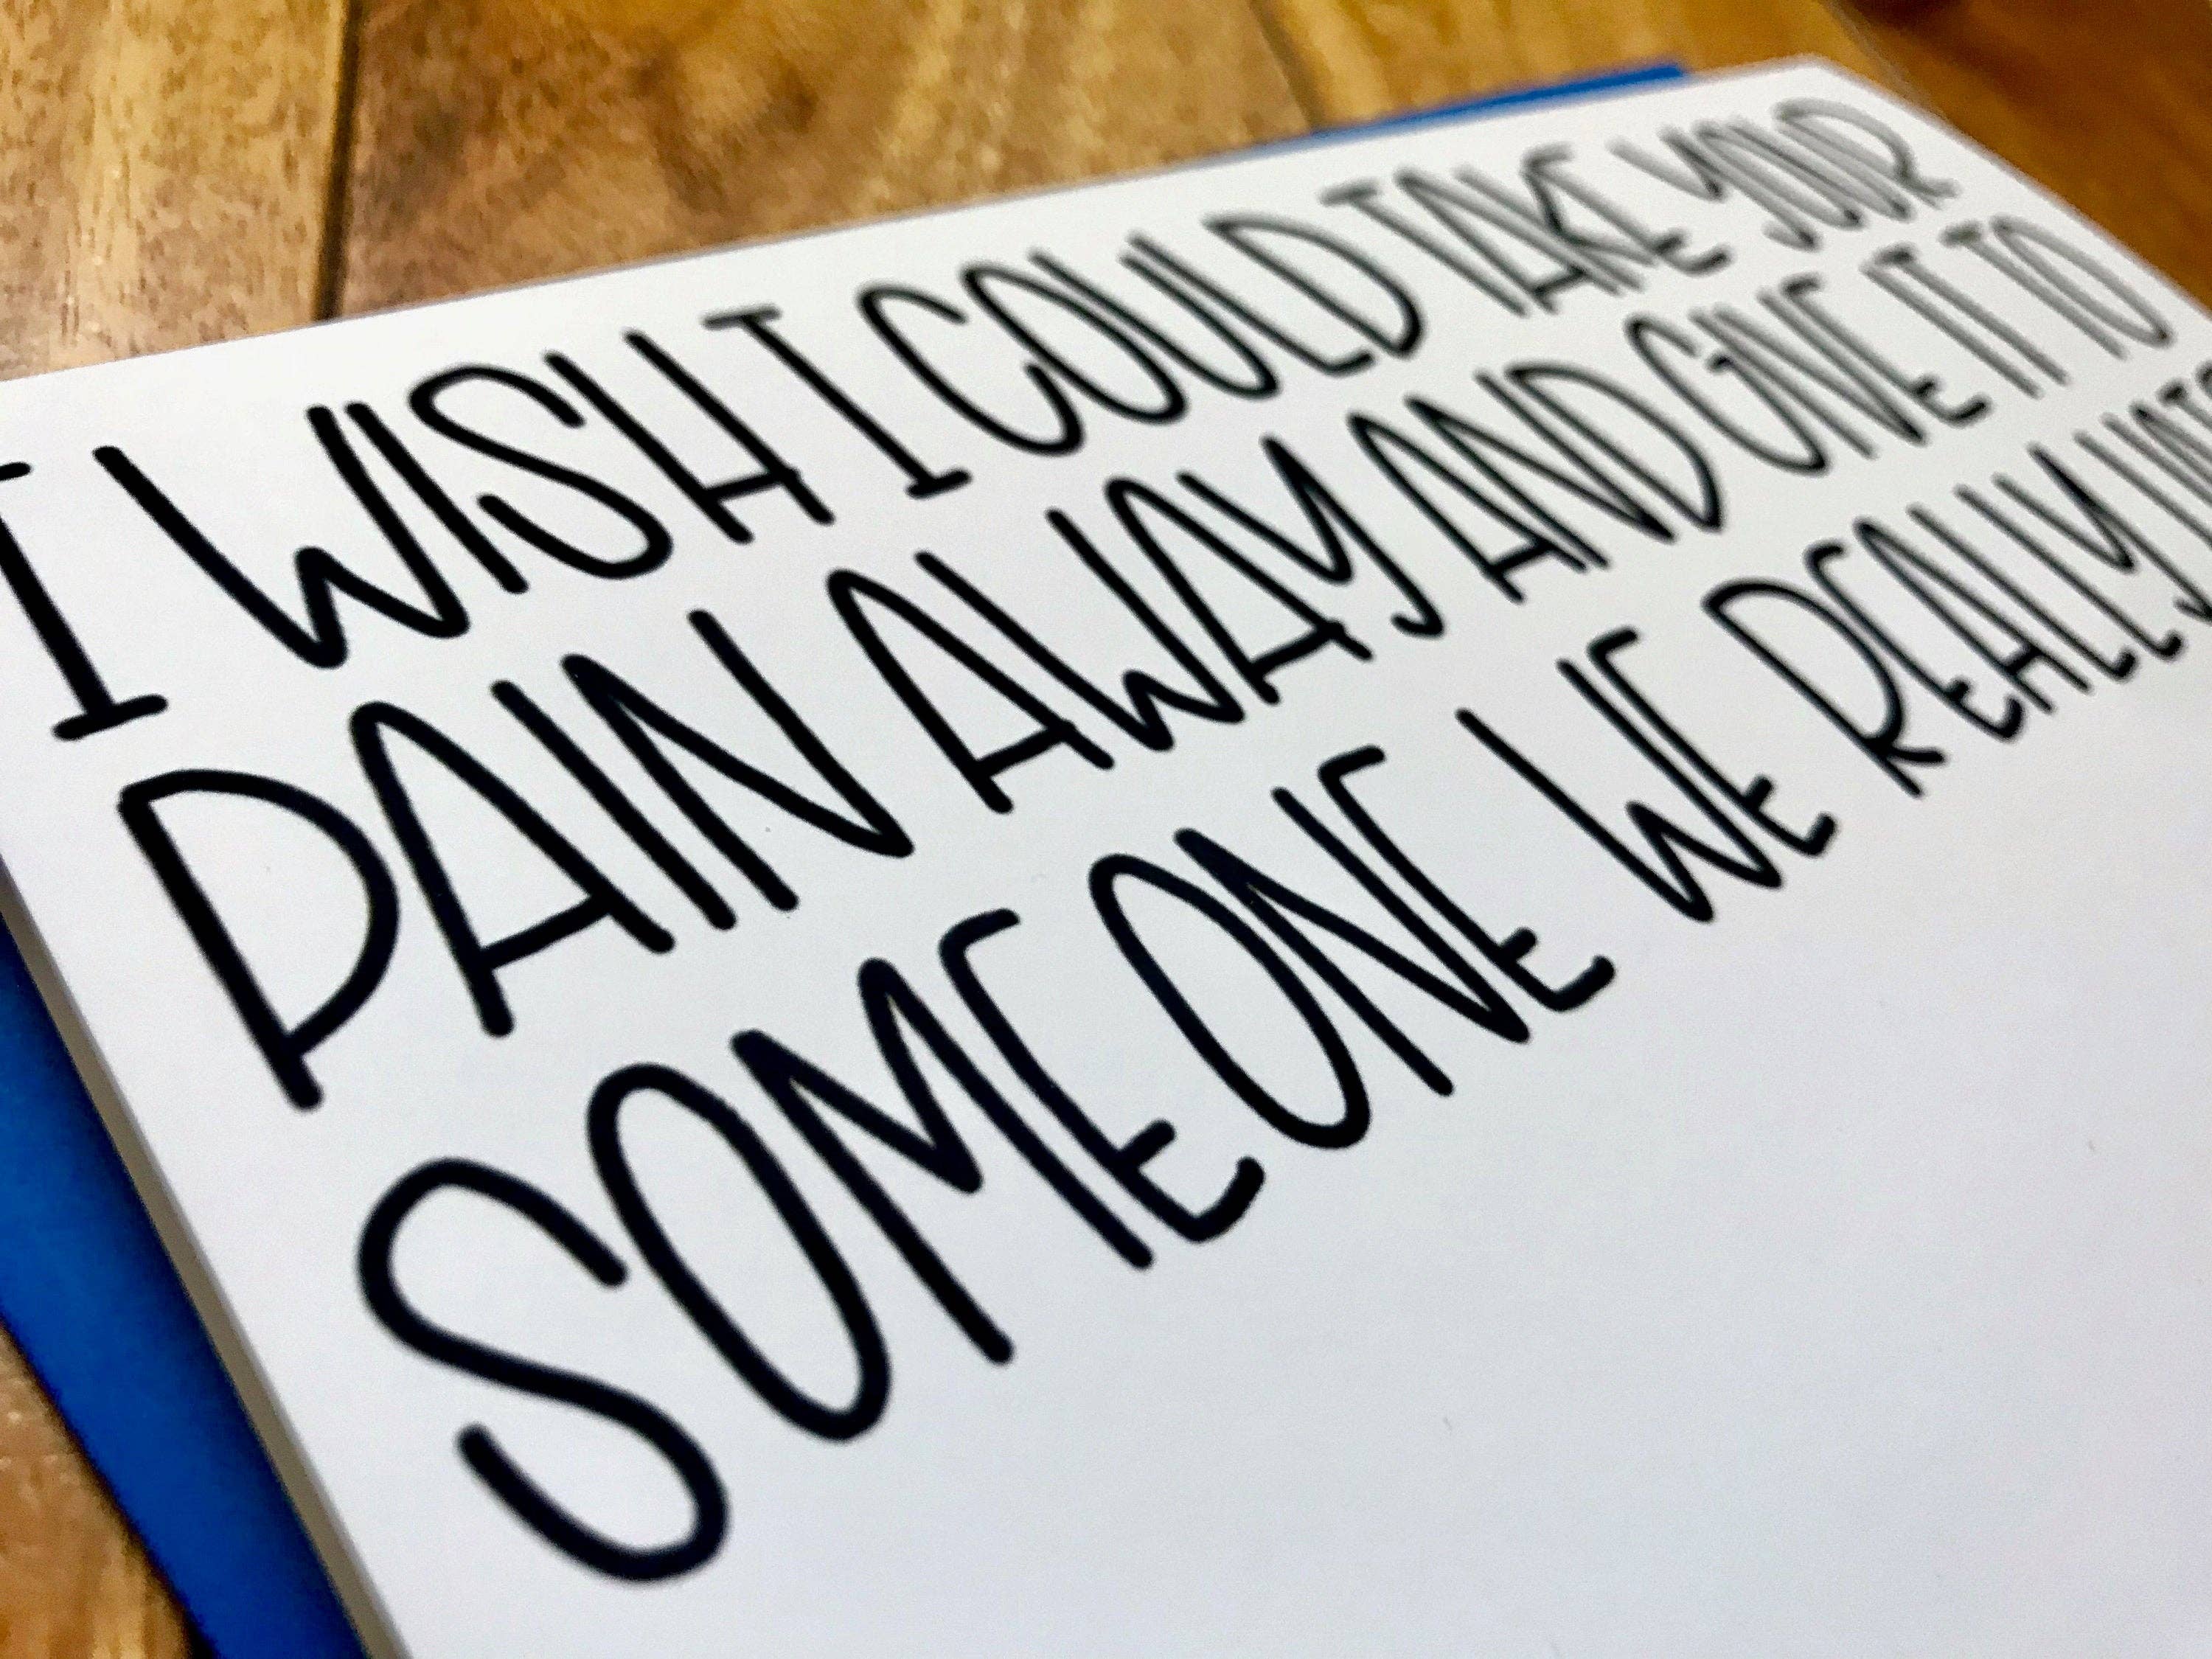 I WISH I COULD TAKE YOUR
PAIN AWAY AND GIVE IT TO
SOMEONE WE REALLY